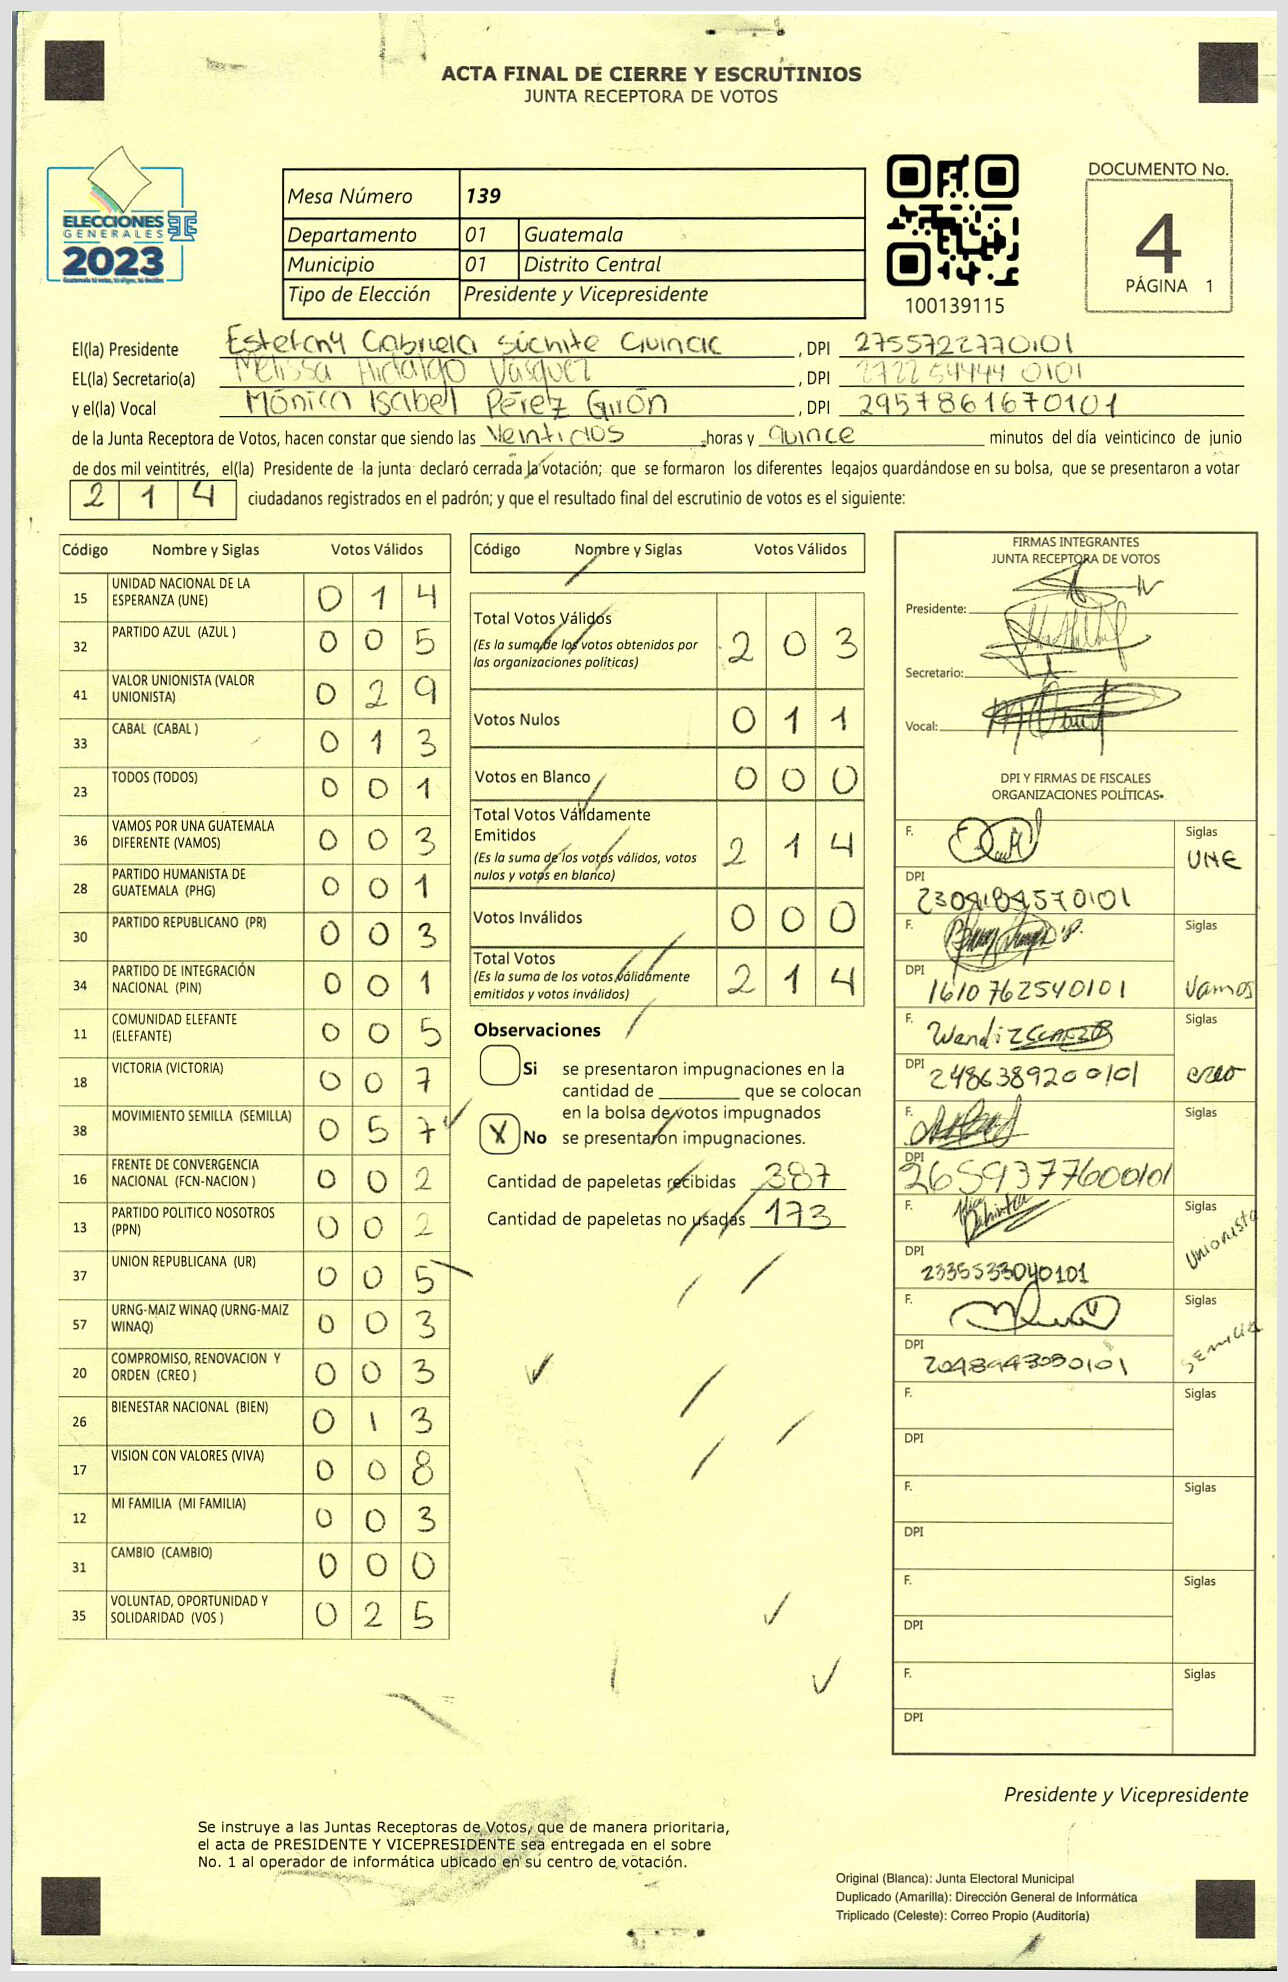 ACTA FINAL DE CIERRE Y ESCRUTINIOS
JUNTA RECEPTORA DE VOTOS
ELECCIONES
GENERALES
2023
Mesa Número 139
Departamento 01 Guatemala
Municipio 01 Distrito Central
Tipo de Elección Presidente y Vicepresidente
100139115
DOCUMENTO No.
4
PÁGINA 1
El(la) Presidente Gabriela Súchite , DPI 2755722770101
EL(la) Secretario(a) Melissa Hidalgo Vásquez , DPI 0101
y el(la) Vocal Mónica Isabel Pérez Girón , DPI 2957861670101
de la Junta Receptora de Votos, hacen constar que siendo las Veintidos horas y quince minutos del día veinticinco de junio
de dos mil veintitrés, el(la) Presidente de la junta declaró cerrada la votación; que se formaron los diferentes legajos guardándose en su bolsa, que se presentaron a votar
2 1 4 ciudadanos registrados en el padrón; y que el resultado final del escrutinio de votos es el siguiente:
Código Nombre y Siglas Votos Válidos
15 UNIDAD NACIONAL DE LA ESPERANZA (UNE) 0 1 4
32 PARTIDO AZUL (AZUL ) 0 0 5
41 VALOR UNIONISTA (VALOR UNIONISTA) 0 2 9
33 CABAL (CABAL ) 0 1 3
23 TODOS (TODOS) 0 0 1
36 VAMOS POR UNA GUATEMALA DIFERENTE (VAMOS) 0 0 3
28 PARTIDO HUMANISTA DE GUATEMALA (PHG) 0 0 1
30 PARTIDO REPUBLICANO (PR) 0 0 3
34 PARTIDO DE INTEGRACIÓN NACIONAL (PIN) 0 0 1
11 COMUNIDAD ELEFANTE (ELEFANTE) 0 0 5
18 VICTORIA (VICTORIA) 0 0 7
38 MOVIMIENTO SEMILLA (SEMILLA) 0 5 7
16 FRENTE DE CONVERGENCIA NACIONAL (FCN-NACION ) 0 0 2
13 PARTIDO POLITICO NOSOTROS (PPN) 0 0 2
37 UNION REPUBLICANA (UR) 0 0 5
57 URNG-MAIZ WINAQ (URNG-MAIZ WINAQ) 0 0 3
20 COMPROMISO, RENOVACION Y ORDEN (CREO ) 0 0 3
26 BIENESTAR NACIONAL (BIEN) 0 1 3
17 VISION CON VALORES (VIVA) 0 0 8
12 MI FAMILIA (MI FAMILIA) 0 0 3
31 CAMBIO (CAMBIO) 0 0 0
35 VOLUNTAD, OPORTUNIDAD Y SOLIDARIDAD (VOS ) 0 2 5
Código Nombre y Siglas Votos Válidos
Total Votos Válidos 2 0 3
(Es la suma de los votos obtenidos por
las organizaciones políticas)
Votos Nulos 0 1 1
Votos en Blanco 0 0 0
Total Votos Válidamente
Emitidos 2 1 4
(Es la suma de los votos válidos, votos
nulos y votos en blanco)
Votos Inválidos 0 0 0
Total Votos 2 1 4
(Es la suma de los votos válidamente
emitidos y votos inválidos)
Observaciones
Si se presentaron impugnaciones en la
cantidad de que se colocan
en la bolsa de votos impugnados
X No se presentaron impugnaciones.
Cantidad de papeletas recibidas 387
Cantidad de papeletas no usadas 173
FIRMAS INTEGRANTES
JUNTA RECEPTORA DE VOTOS
Presidente:
Secretario:
Vocal:
DPI Y FIRMAS DE FISCALES
ORGANIZACIONES POLÍTICAS
F. Siglas
UNE
DPI
F. Siglas
DPI 1610762540101 Vamos
F. Siglas
DPI 2486389200101 creo
F. Siglas
DPI 2659377600101
F. Siglas
Unionista
DPI 2335533040101
F. Siglas
Semilla
DPI
F. Siglas
DPI
F. Siglas
DPI
F. Siglas
DPI
F. Siglas
DPI
Presidente y Vicepresidente
Se instruye a las Juntas Receptoras de Votos, que de manera prioritaria,
el acta de PRESIDENTE Y VICEPRESIDENTE sea entregada en el sobre
No. 1 al operador de informática ubicado en su centro de votación.
Original (Blanca): Junta Electoral Municipal
Duplicado (Amarilla): Dirección General de Informática
Triplicado (Celeste): Correo Propio (Auditoría)